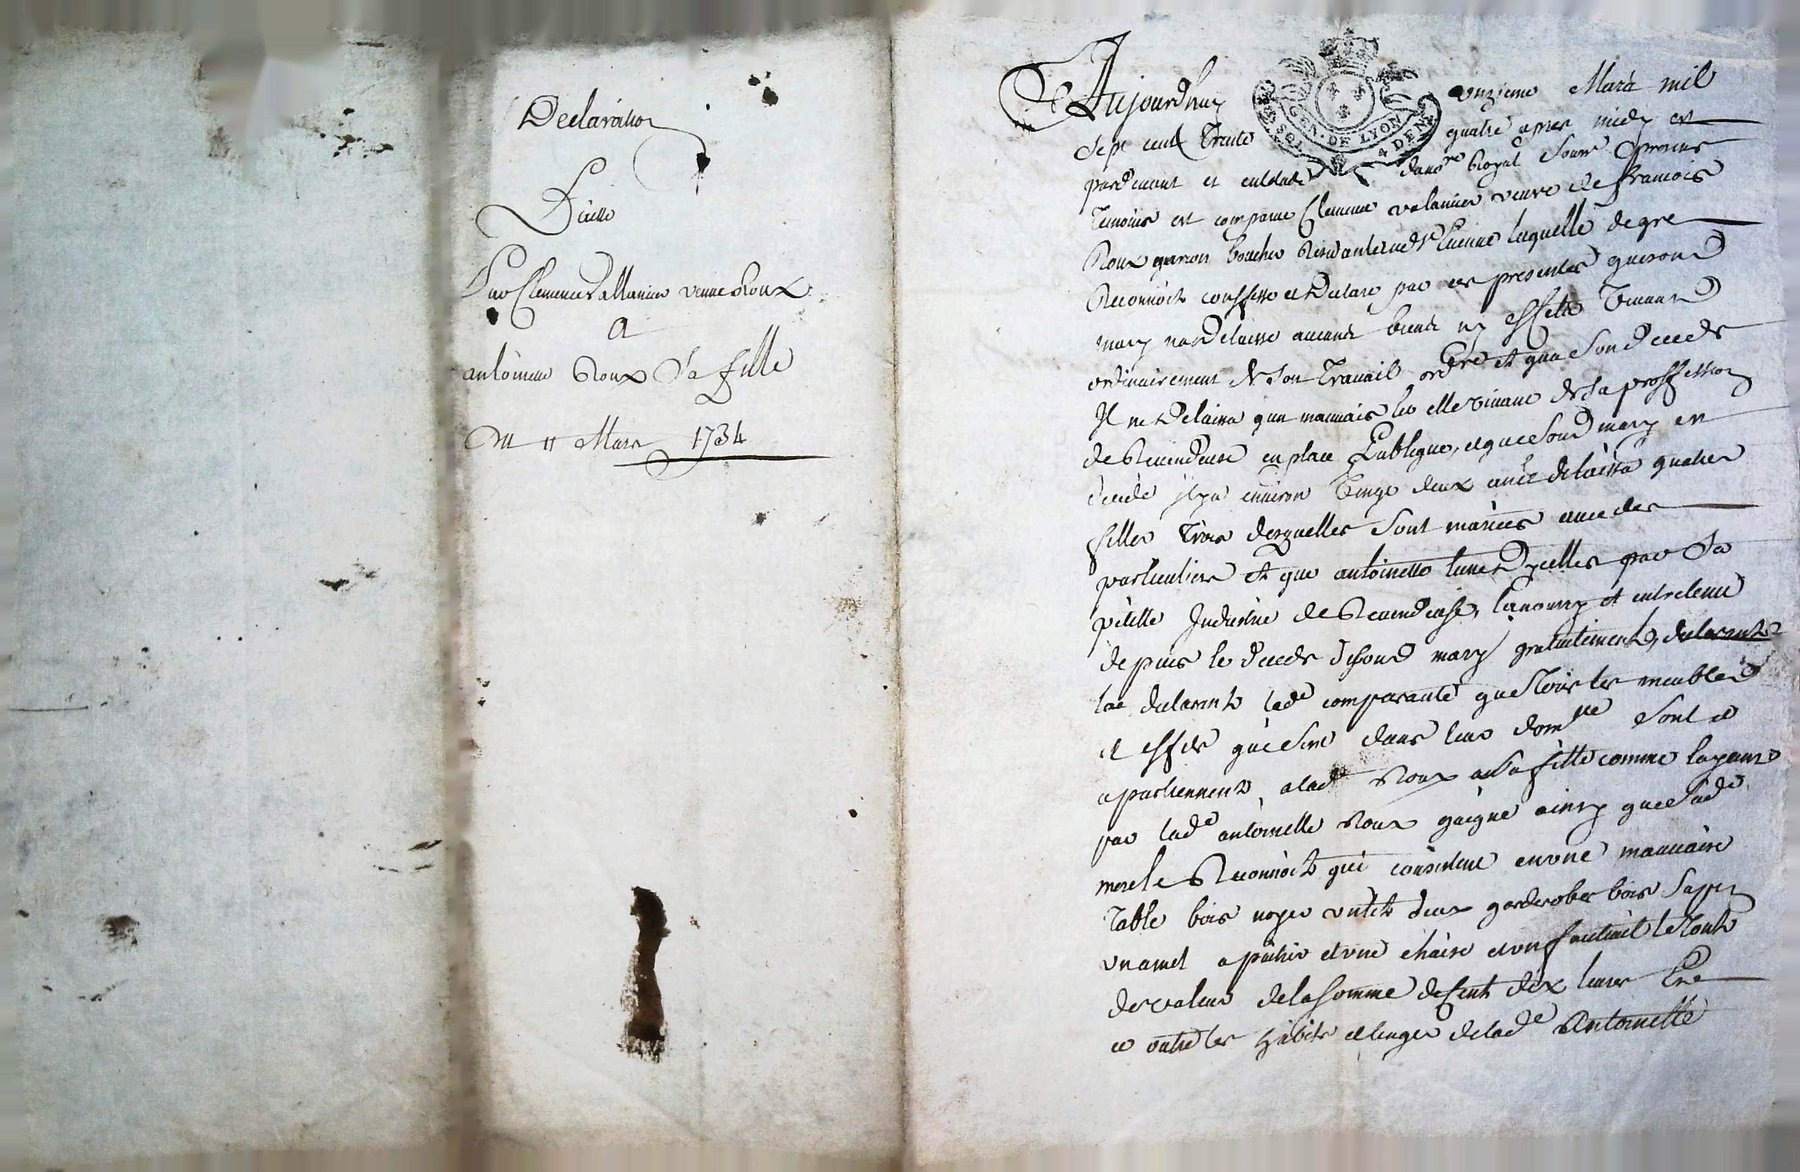 Declaration
Faitte
Par Clemence Vallanier veuve Roux
A
antoinette Roux Sa fille
Du 11 Mars 1734
Aujourdhuy onzieme Mars mil
GEN. DE LYON
SOL 4 DEN
Sept cent Trente quatre apres midy est
pardevant et Royal Soussne presens
Temoins est comparue Clemence valanier veuve de francois
Roux garcon boucher laquelle de gre
Reconnoit confesse et Declare par ces presentes que son
mary na Delaisse aucuns biens ny effets vivant
ordinairement de son Travail et que son deceds
Il ne Delaissa qun mauvais elle vivant de sa proffession
de Revendeuse en place Publique, et que son mary est
decede il y a environ vingt deux delaissa quatre
filles Trois desquelles sont mariees avec des
particuliers Et que antoinette lune dycelles par sa
petitte Industrie de Revendeuse, la nourry et entretenue
depuis le deceds de son mary gratuitement, declarant
declarant lade comparante que Tous les meubles
et effets qui sont dans leur domlle sont et
apartiennent a lade Roux sa fille comme layant
par lade antoinette Roux gaigne ainsy que sade
mere le Reconnoit qui consistent en une mauvaise
Table bois noyer un lit deux garderobes bois sapin
a paitrir et une chaire et un fauteuil le Tout
de valeur de la somme de Cent dix livres
et outre les habits et linges de lade Antoinette